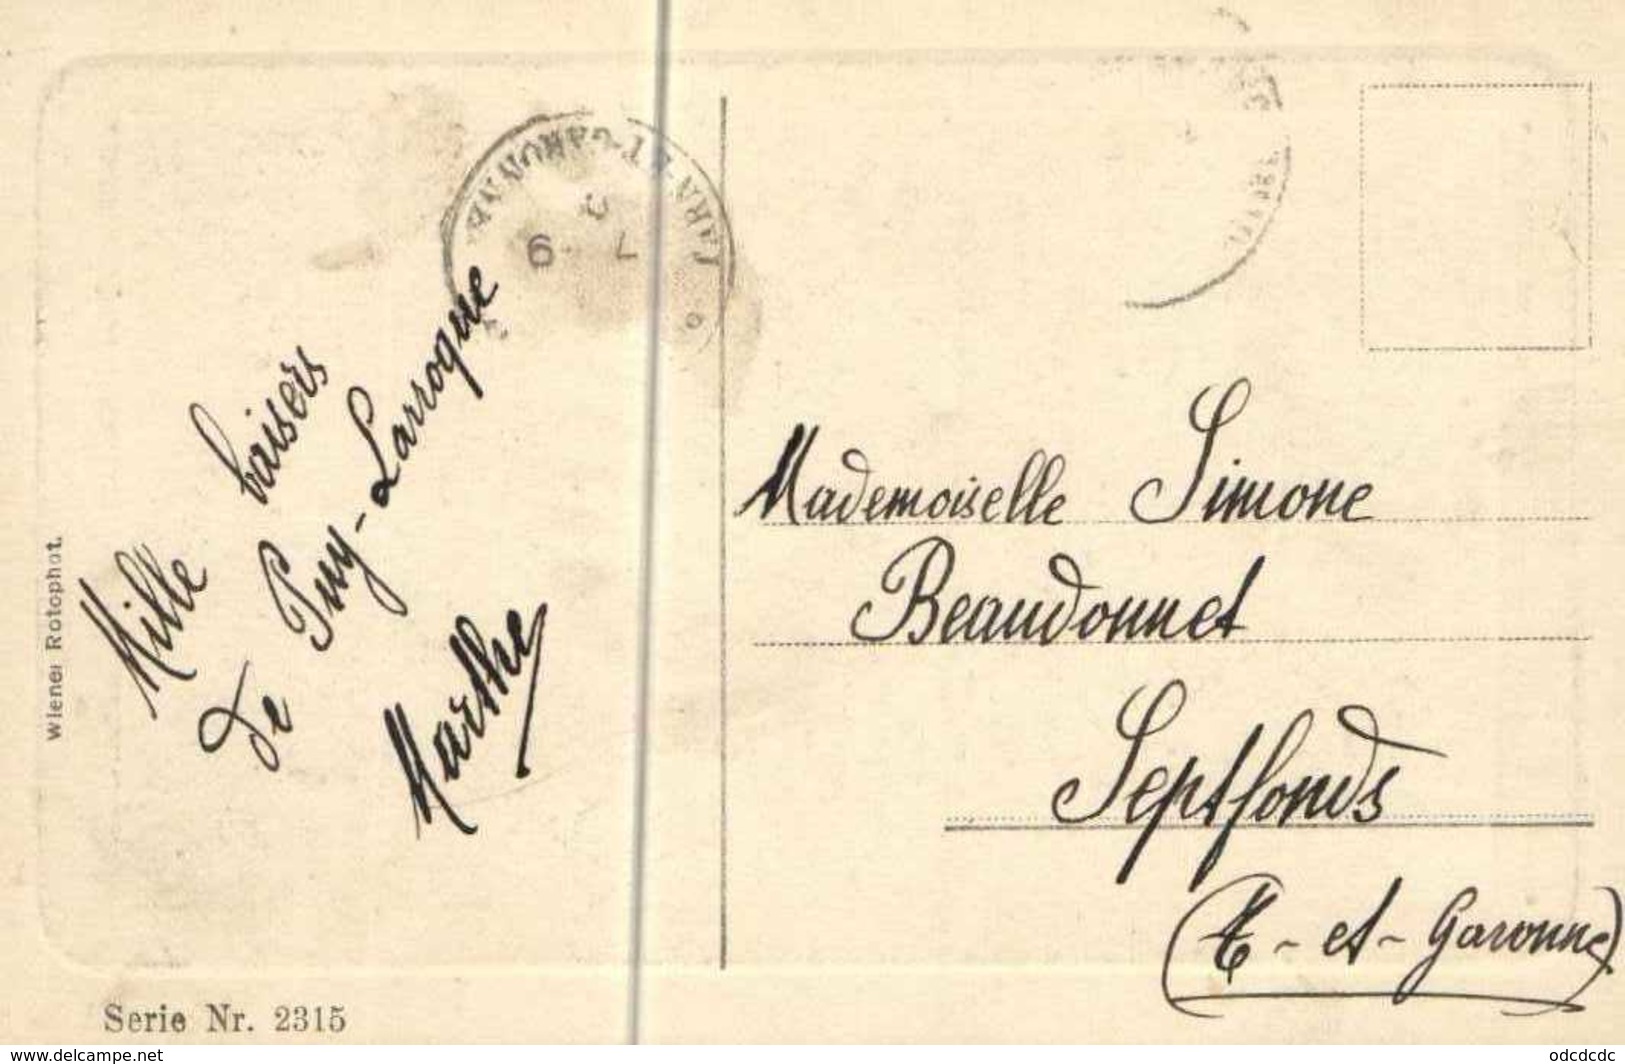 TARN-ET-GARONNE
7 9
Mille baisers
de Puy-Larroque
Marthe
Mademoiselle Simone
Beaudonnet
Septfonds
(T-et-Garonne)
Wiener Rotophot.
Serie Nr. 2315
www.delcampe.net
odcdcdc